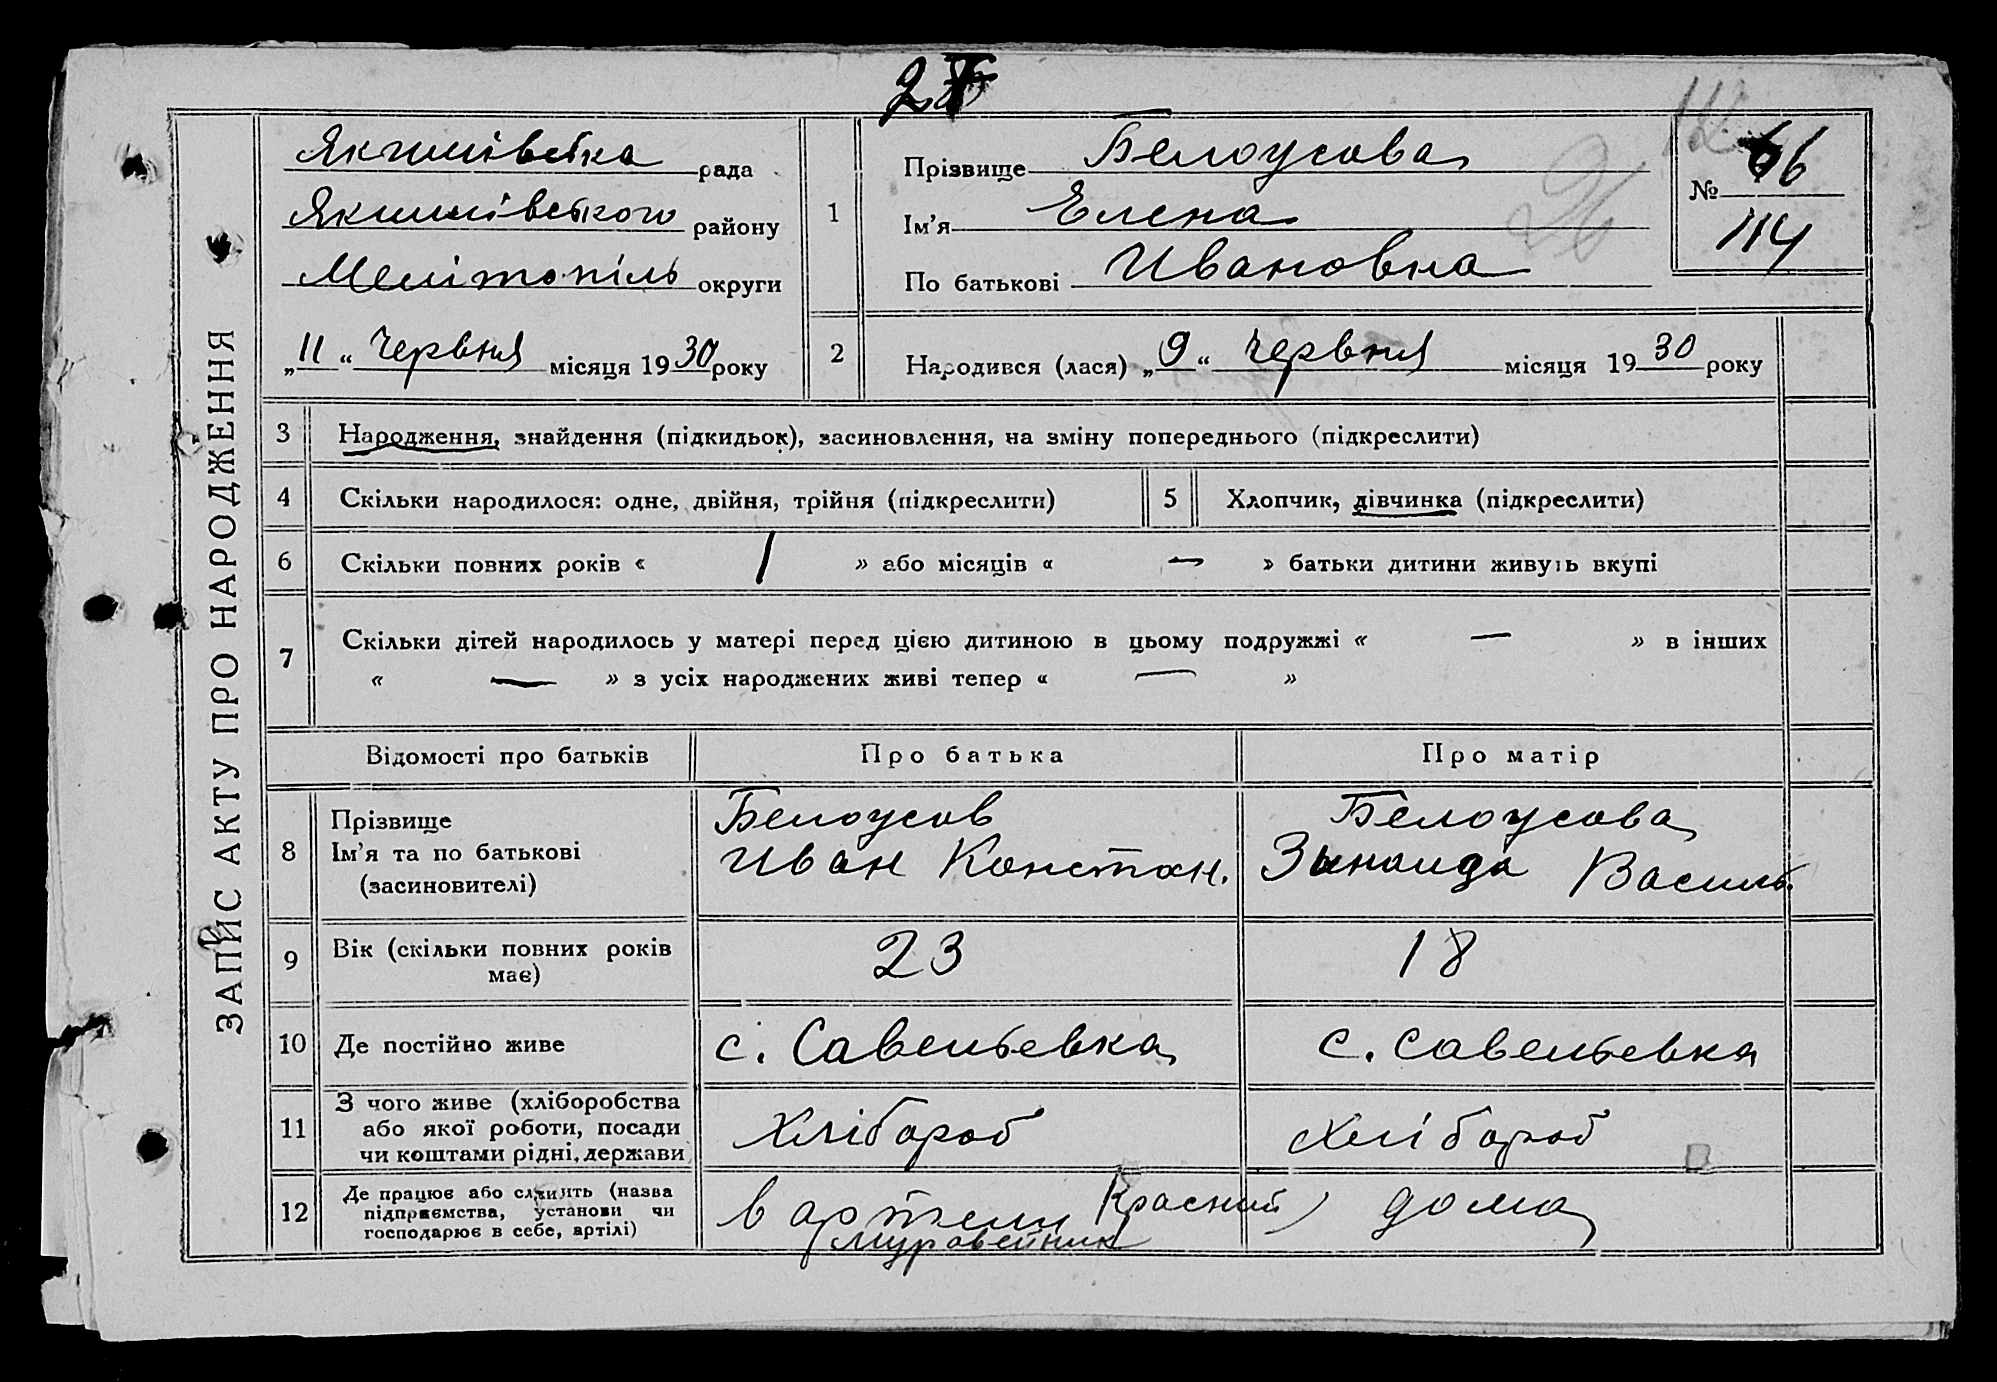 ЗАПИС АКТУ ПРО НАРОДЖЕННЯ
Якимівська рада
Якимівського району
Мелітопіль округи
„11“ Червня місяця 1930 року
1
Прізвище Белоусова
Ім’я Елена
По батькові Ивановна
№ 66
114
26
2
Народився (лася) „9“ червня місяця 1930 року
3 Народження, знайдення (підкидьок), засиновлення, на зміну попереднього (підкреслити)
4 Скільки народилося: одне, двійня, трійня (підкреслити) 5 Хлопчик, дівчинка (підкреслити)
6 Скільки повних років « 1 » або місяців « — » батьки дитини живуть вкупі
7 Скільки дітей народилось у матері перед цією дитиною в цьому подружжі « — » в інших
« — » з усіх народжених живі тепер « — »
Відомості про батьків Про батька Про матір
8 Прізвище
Ім’я та по батькові
(засиновителі)
Белоусов
Иван Констан.
Белоусова
Зинаида Василь.
9 Вік (скільки повних років
має)
23 18
10 Де постійно живе с. Савельевка с. Савельевка
11 З чого живе (хліборобства
або якої роботи, посади
чи коштами рідні, держави
Хлібороб Хлібороб
12 Де працює або служить (назва
підприємства, установи чи
господарює в себе, артілі)
в артели Красний
Муравейник
дома